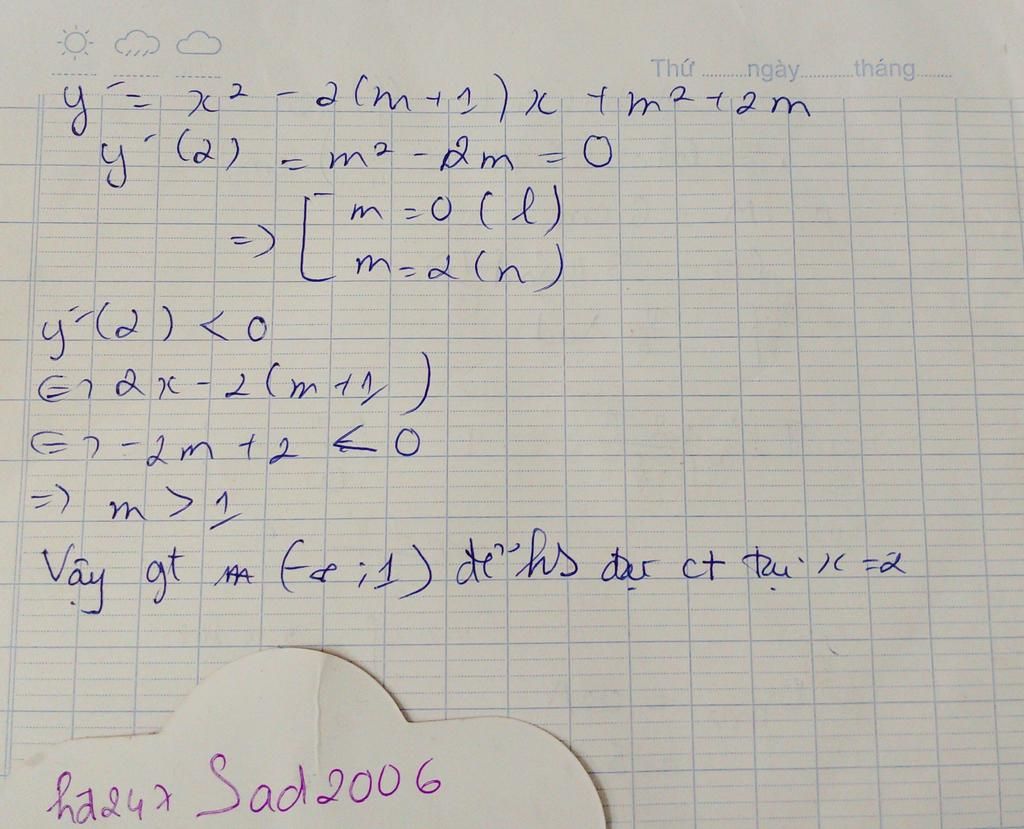 Thứ ..........ngày..........tháng.......
y' = x² - 2(m+1)x + m² + 2m
y'(2) = m² - 2m = 0
=> [ m = 0 (l)
m = 2 (n)
y''(2) < 0
<=> 2x - 2(m+1)
<=> -2m + 2 < 0
=> m > 1
Vậy gt (-∞ ; 1) để hs đạt ct tại x = 2
hd247 Sad2006